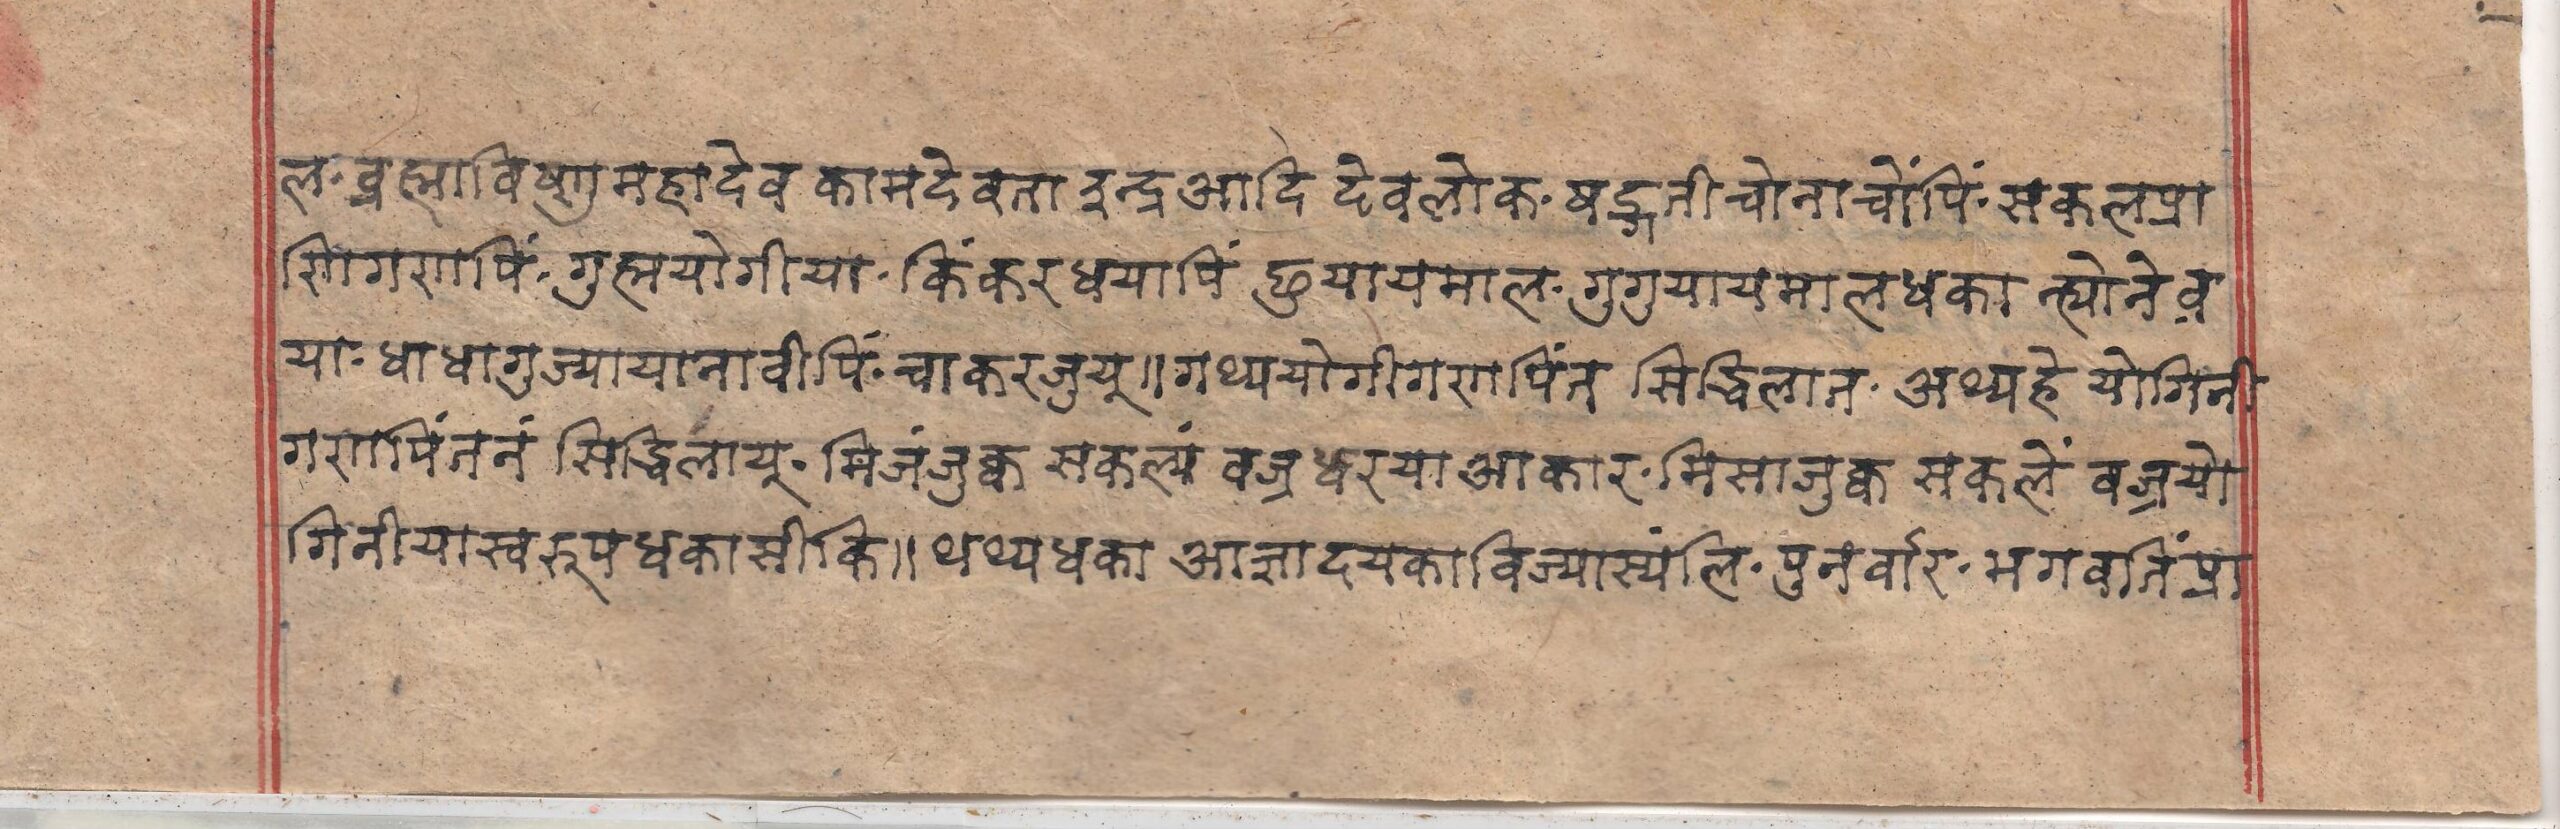 ल·ब्रह्माविष्णुमहादेव कामदेवता इन्द्रआदि देवलोक·षद्गतीचोनाचोंपिं·सकलप्रा
णिगणपिं·गुह्मयोगीया·किंकरधयापिं छुयायमाल·गुगुयायमालधका न्ह्योनेव
या·धाधागुज्यायानावीपिं·चाकरजुयू॥गथ्ययोगीगणपिंत सिद्धिलात·अथ्यहे योगिनी
गणपिंतनं सिद्धिलायू·मिजंजुक्व सकल्यं वज्रधरयाआकार·मिसाजुक्व सकलें वज्रयो
गिनीयास्वरूपधकासीकि॥थथ्यधका आज्ञादयकाविज्यास्यंलि·पुनर्वार·भगवतिंप्रा